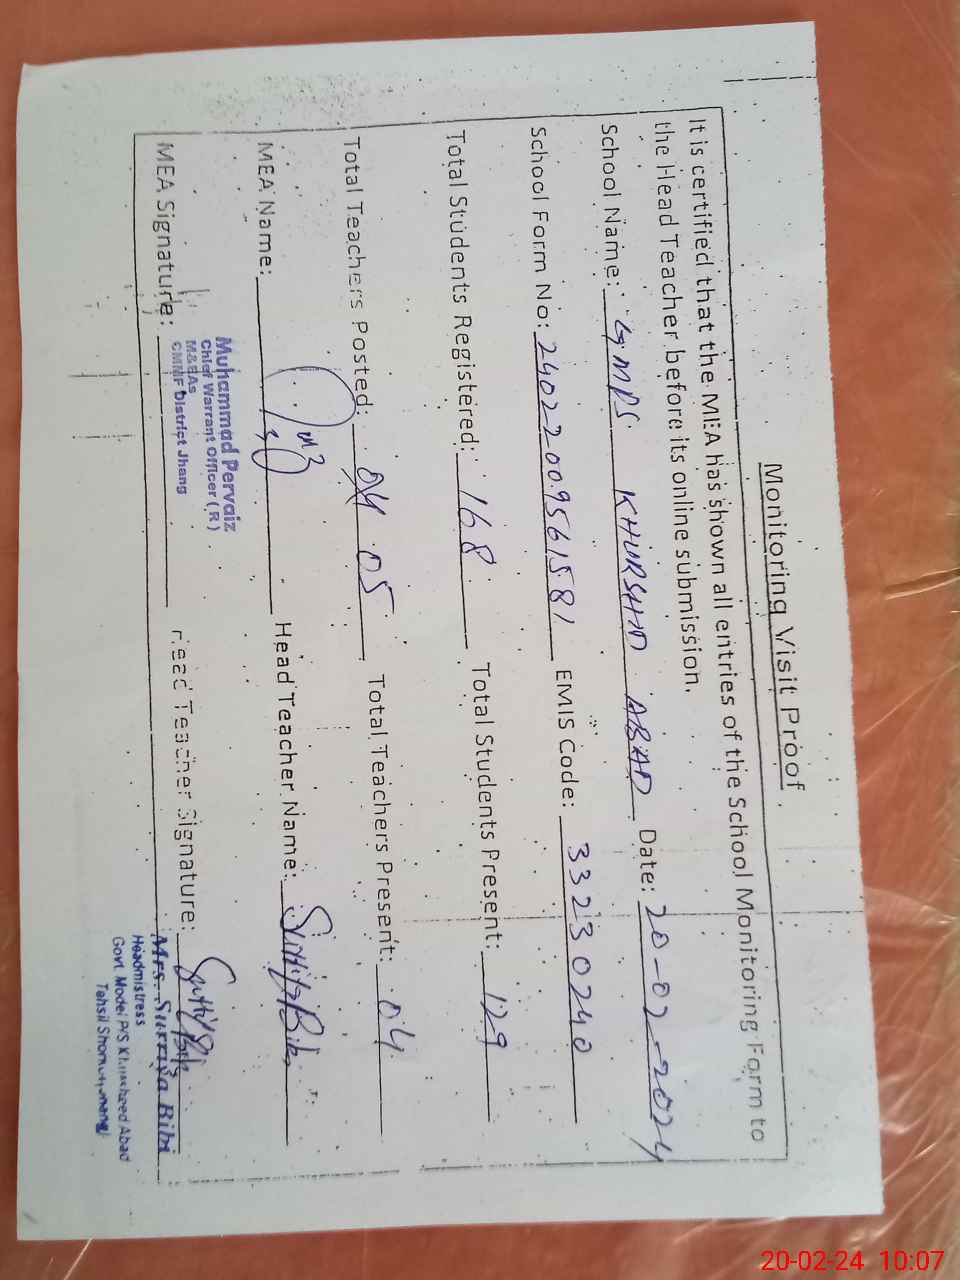 Monitoring Visit Proof
It is certified that the MEA has shown all entries of the School Monitoring Form to
the Head Teacher before its online submission.
School Name: GMPS KHURSHID ABAD Date: 20-02-2024
School Form No: 24022009561581 EMIS Code: 33230240
Total Students Registered: 168 Total Students Present: 129
Total Teachers Posted: 04 05 Total Teachers Present: 04
MEA Name: Head Teacher Name: Surriya Bibi
Muhammad Pervaiz
Chief Warrant Officer (R)
M&EAs
CMMF District Jhang
MEA Signature: Head Teacher Signature:
Mrs. Surriya Bibi
Headmistress
Govt. Model P/S Khursheed Abad
Tehsil
20-02-24 10:07